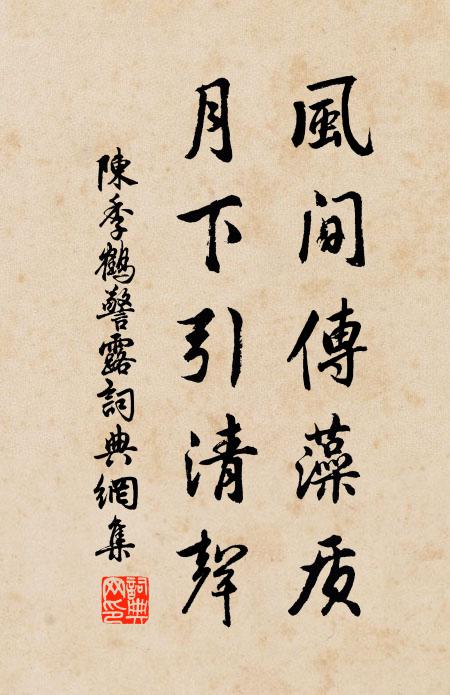 風間傳藻质
月下引清聲
陳季鶴警露詞典網集
詞典網印